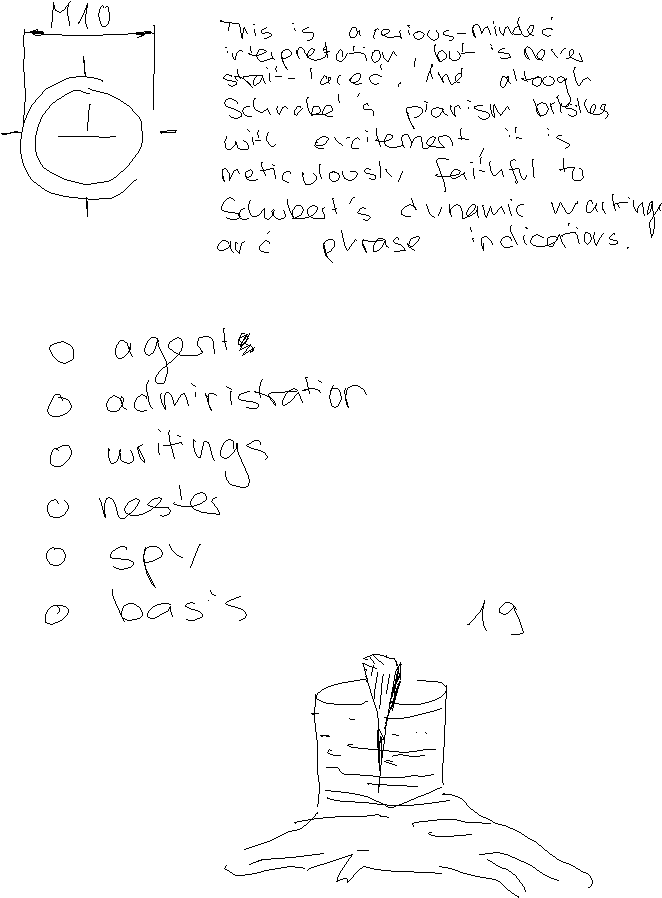 M10
This is a serious-minded
interpretation, but is never
strait-laced. And altough
Schrabe's piarism bristles
with excitement, it is
meticulously faithful to
Schubert's dynamic warting
and phrase indications.
agent
administration
writings
nester
spy
basis
19